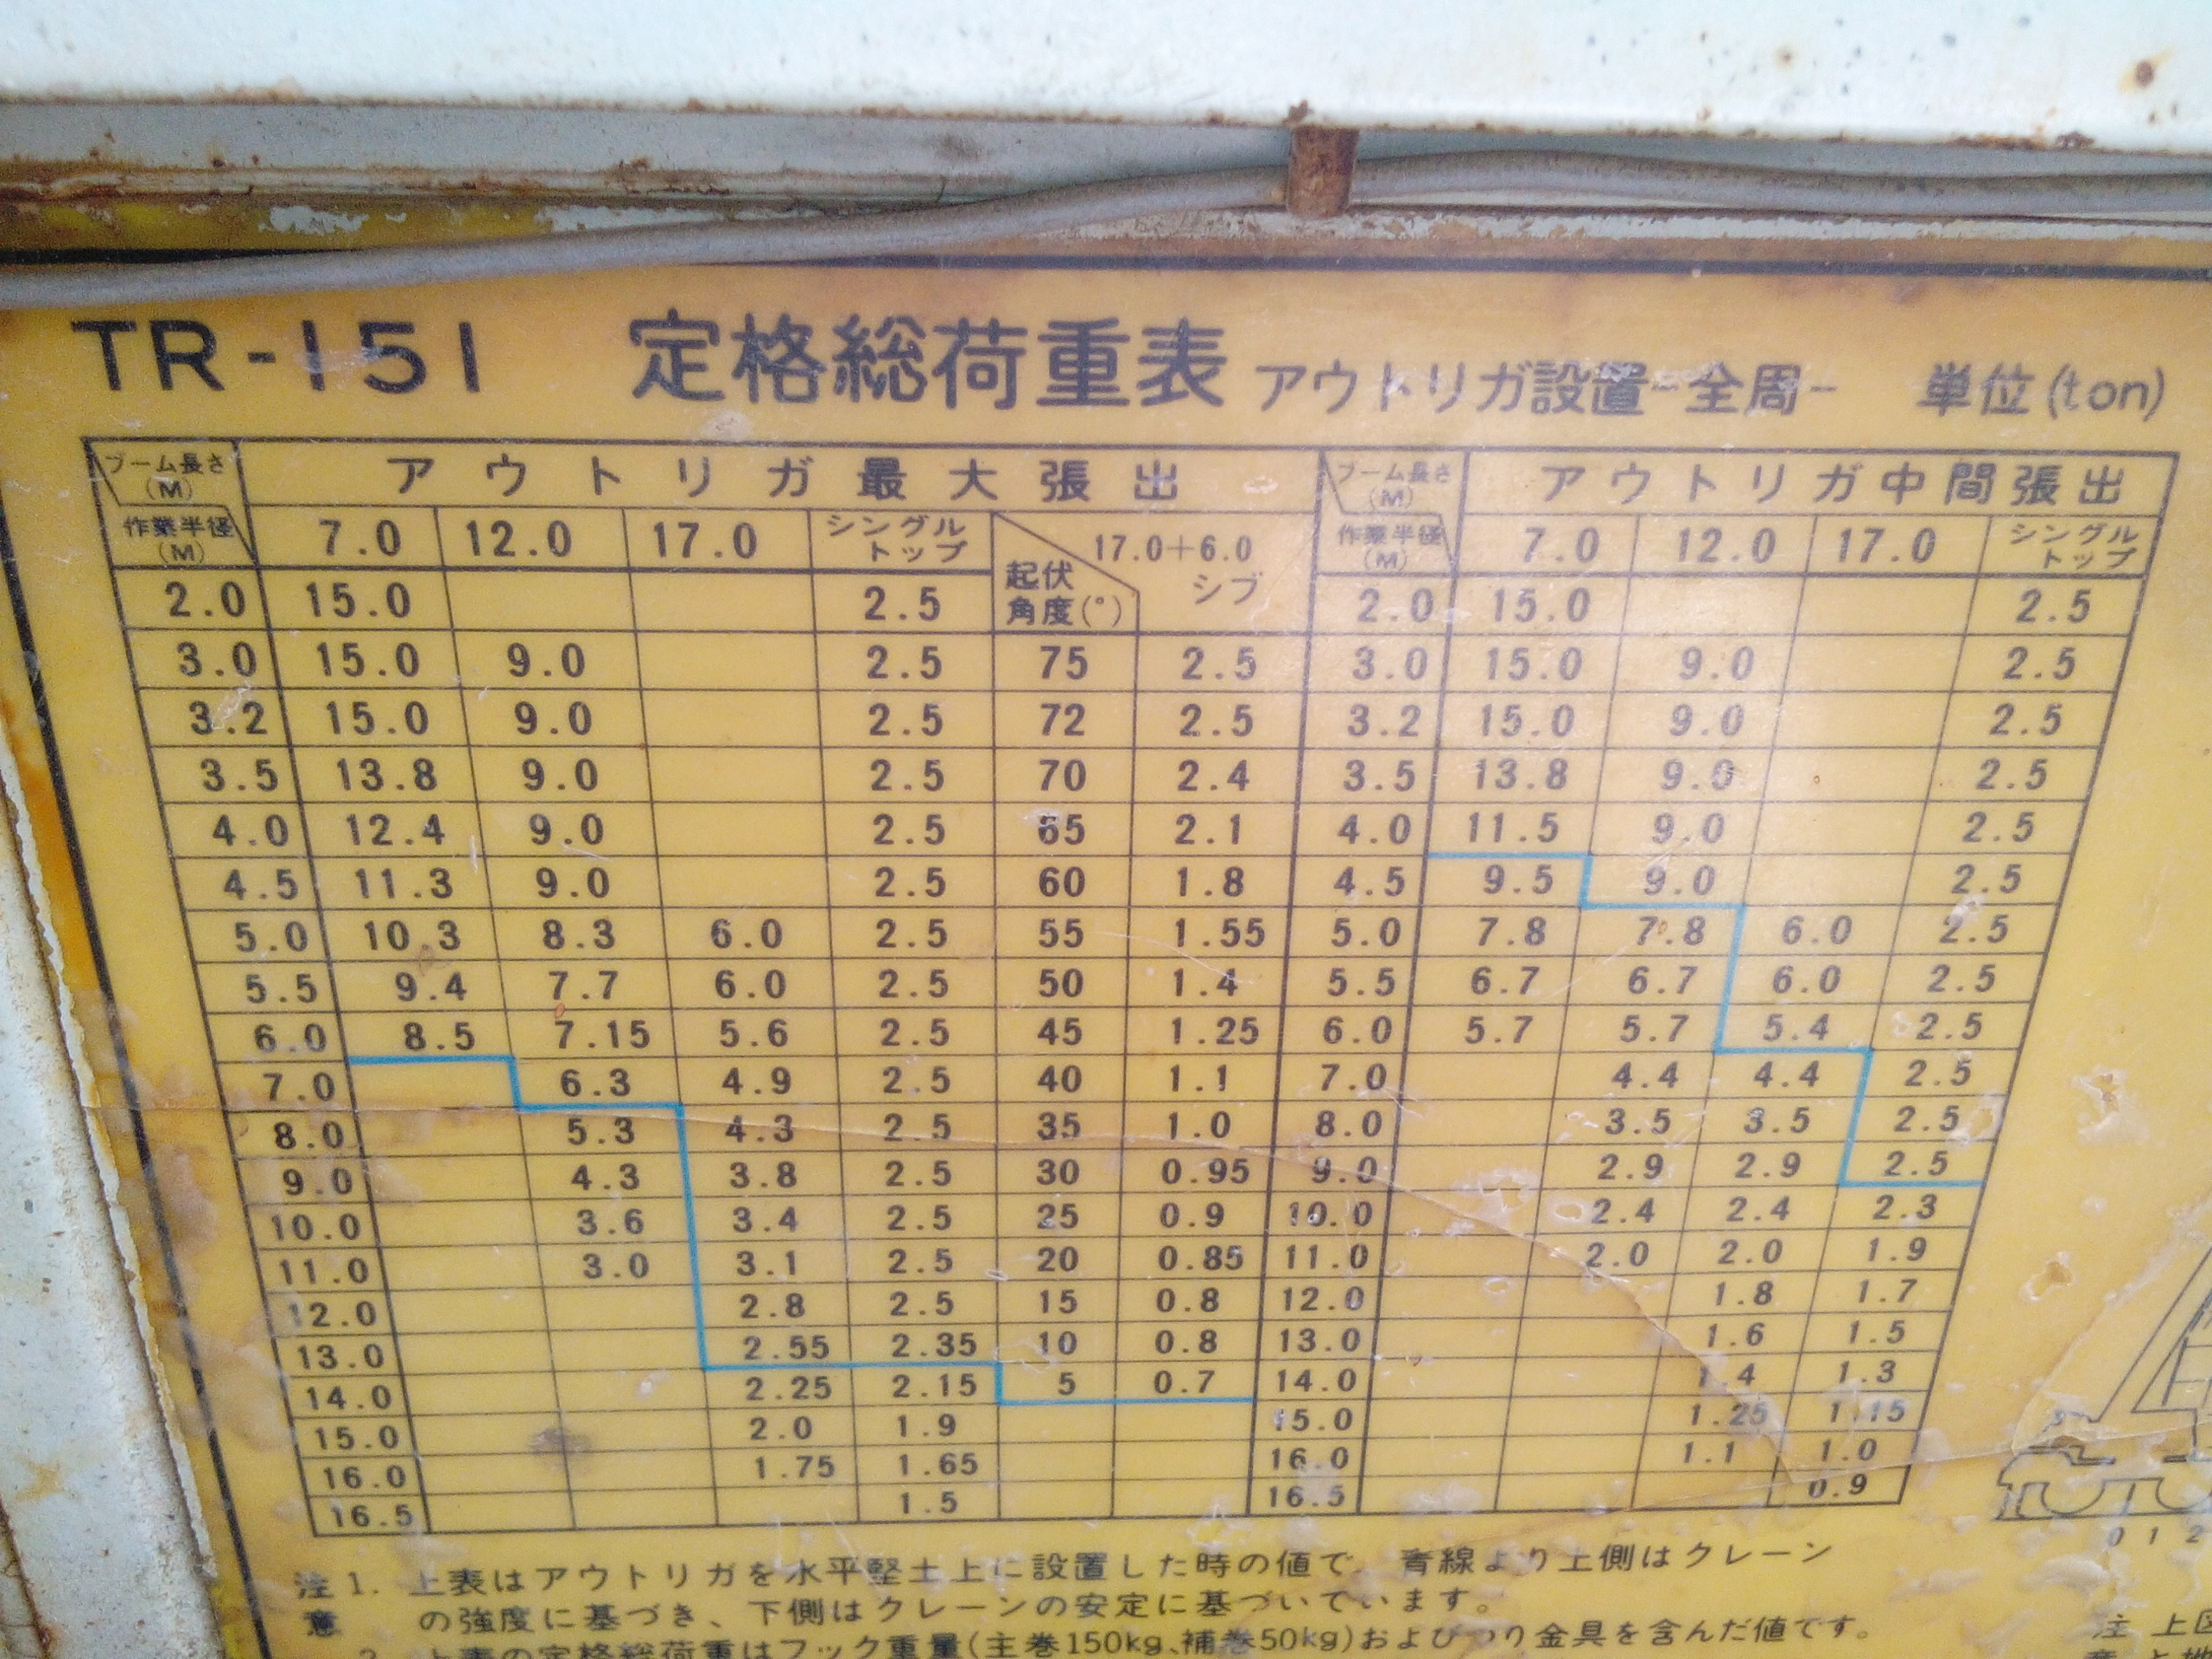 TR-151 定格総荷重表 アウトリガ設置-全周- 単位(ton)
ブーム長さ(M) アウトリガ最大張出 ブーム長さ(M) アウトリガ中間張出
作業半径(M) 7.0 12.0 17.0 シングルトップ 起伏角度(°) 17.0+6.0 ジブ 作業半径(M) 7.0 12.0 17.0 シングルトップ
2.0 15.0 2.5 2.0 15.0 2.5
3.0 15.0 9.0 2.5 75 2.5 3.0 15.0 9.0 2.5
3.2 15.0 9.0 2.5 72 2.5 3.2 15.0 9.0 2.5
3.5 13.8 9.0 2.5 70 2.4 3.5 13.8 9.0 2.5
4.0 12.4 9.0 2.5 65 2.1 4.0 11.5 9.0 2.5
4.5 11.3 9.0 2.5 60 1.8 4.5 9.5 9.0 2.5
5.0 10.3 8.3 6.0 2.5 55 1.55 5.0 7.8 7.8 6.0 2.5
5.5 9.4 7.7 6.0 2.5 50 1.4 5.5 6.7 6.7 6.0 2.5
6.0 8.5 7.15 5.6 2.5 45 1.25 6.0 5.7 5.7 5.4 2.5
7.0 6.3 4.9 2.5 40 1.1 7.0 4.4 4.4 2.5
8.0 5.3 4.3 2.5 35 1.0 8.0 3.5 3.5 2.5
9.0 4.3 3.8 2.5 30 0.95 9.0 2.9 2.9 2.5
10.0 3.6 3.4 2.5 25 0.9 10.0 2.4 2.4 2.3
11.0 3.0 3.1 2.5 20 0.85 11.0 2.0 2.0 1.9
12.0 2.8 2.5 15 0.8 12.0 1.8 1.7
13.0 2.55 2.35 10 0.8 13.0 1.6 1.5
14.0 2.25 2.15 5 0.7 14.0 1.4 1.3
15.0 2.0 1.9 15.0 1.25 1.15
16.0 1.75 1.65 16.0 1.1 1.0
16.5 1.5 16.5 0.9
0 1 2
注意 1. 上表はアウトリガを水平堅土上に設置した時の値で、青線より上側はクレーン
の強度に基づき、下側はクレーンの安定に基づいています。
2. 上表の定格総荷重はフック重量(主巻150kg、補巻50kg)およびつり金具を含んだ値です。
注 上